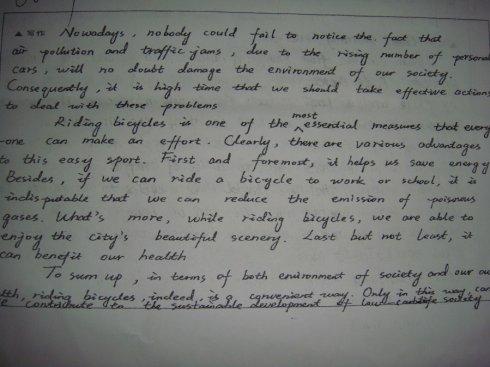 ▲写作 Nowadays, nobody could fail to notice the fact that
air pollution and traffic jams, due to the rising number of personal
cars, will no doubt damage the environment of our society.
Consequently, it is high time that we should take effective actions
to deal with these problems
Riding bicycles is one of the most essential measures that every
-one can make an effort. Clearly, there are various advantages
to this easy sport. First and foremost, it helps us save energy
Besides, if we can ride a bicycle to work or school, it is
indisputable that we can reduce the emission of poisonous
gases. What's more, while riding bicycles, we are able to
enjoy the city's beautiful scenery. Last but not least, it
can benefit our health
To sum up, in terms of both environment of society and our
lth, riding bicycles, indeed, is a convenient way. Only in this way, can
e contribute to the sustainable development of society